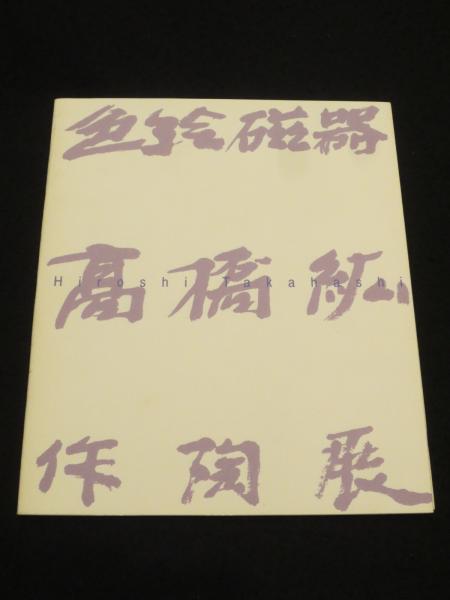 色絵磁器
高橋紘
Hiroshi Takahashi
作陶展